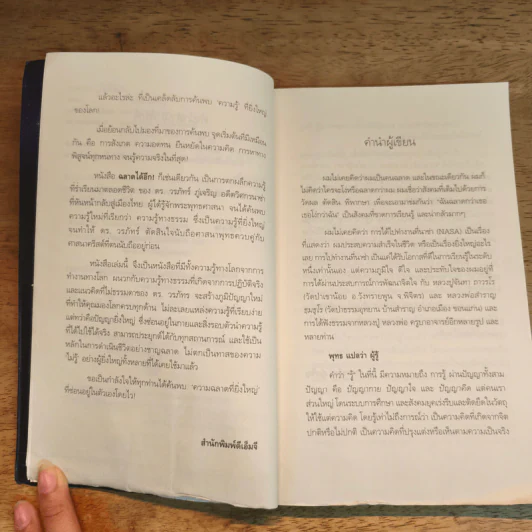 แล้วอะไรล่ะ ที่เป็นเคล็ดลับการค้นพบ 'ความรู้' ที่ยิ่งใหญ่
ของโลก!
เมื่อย้อนกลับไปมองที่มาของการค้นพบ จุดเริ่มต้นที่มีเหมือน
กัน คือ การสังเกต ความอดทน ยืนหยัดในความคิด การหาทาง
พิสูจน์ทุกหนทาง จนรู้ความจริงในที่สุด!
หนังสือ ฉลาดได้อีก! ก็เช่นเดียวกัน เป็นการตกผลึกความรู้
ที่ร่ำเรียนมาตลอดชีวิต ของ ดร. วรภัทร์ ภู่เจริญ อดีตวิศวกรนาซ่า
ที่หันหน้ากลับสู่เมืองไทย ผู้ได้รู้จักพระพุทธศาสนา จนได้ค้นพบ
ความรู้ใหม่ที่เรียกว่า ความรู้ทางธรรม ซึ่งเป็นความรู้ที่ยิ่งใหญ่
จนทำให้ ดร. วรภัทร์ ตัดสินใจนับถือศาสนาพุทธควบคู่กับ
ศาสนาคริสต์ที่ตนนับถืออยู่ก่อน
หนังสือเล่มนี้ จึงเป็นหนังสือที่มีทั้งความรู้ทางโลกจากการ
ทำงานทางโลก ผนวกกับความรู้ทางธรรมที่เกิดจากการปฏิบัติจริง
และแนวคิดที่ไม่ธรรมดาของ ดร. วรภัทร จะสร้างภูมิปัญญาใหม่
ที่ทำให้คุณมองโลกครบทุกด้าน ไม่ละเลยแหล่งความรู้ที่เรียบง่าย
แต่ทว่าคือปัญญายิ่งใหญ่ ซึ่งซ่อนอยู่ในกายและสิ่งรอบตัวนำความรู้
ที่ได้ไปใช้ได้จริง สามารถประยุกต์ได้กับทุกสถานการณ์ และใช้เป็น
หลักในการดำเนินชีวิตอย่างชาญฉลาด ไม่ตกเป็นทาสของความ
'ไม่รู้' อย่างผู้ยิ่งใหญ่ทั้งหลายที่ได้เคยใช้มาแล้ว
ขอเป็นกำลังใจให้ทุกท่านได้ค้นพบ 'ความฉลาดที่ยิ่งใหญ่'
ที่ซ่อนอยู่ในตัวเองโดยไว!
สำนักพิมพ์ดีเอ็มจี
คำนำผู้เขียน
ผมไม่เคยคิดว่าผมเป็นคนฉลาด และในขณะเดียวกัน ผมก็
ไม่คิดว่าใครจะโง่หรือฉลาดกว่าผม ผมเชื่อว่าสังคมที่เต็มไปด้วยการ
วัดผล ตัดสิน พิพากษา เพื่อจะเอามาข่มกันว่า "ฉันฉลาดกว่าเธอ
เธอโง่กว่าฉัน" เป็นสังคมที่ขาดการเรียนรู้ และน่ากลัวมากๆ
ผมไม่เคยคิดว่า การได้ไปทำงานที่นาซ่า (NASA) เป็นเรื่อง
ที่แสดงว่า ผมประสบความสำเร็จในชีวิต หรือเป็นเรื่องยิ่งใหญ่อะไร
เลย การไปทำงานที่นาซ่า เป็นแค่ได้รับโอกาสที่ดีในการเรียนรู้ในระดับ
หนึ่งเท่านั้นเอง แต่ความภูมิใจ ดีใจ และประทับใจของผมอยู่ที่
การได้ผ่านประสบการณ์การพัฒนาจิตใจ กับ หลวงปู่จันทา ถาวรโร
(วัดป่าเขาน้อย อ.วังทรายพูน จ.พิจิตร) และ หลวงพ่อคำราญ
ธมฺมธุโร (วัดป่าธรรมอุทยาน บ้านสำราญ อ.เมือง ขอนแก่น) และ
การได้ฟังธรรมจากหลวงปู่ หลวงพ่อ ครูบาอาจารย์อีกหลายรูป และ
หลายท่าน
พุทธ แปลว่า ผู้รู้
คำว่า "รู้" ในที่นี้ มีความหมายถึง การรู้ ผ่านปัญญาทั้งสาม
ปัญญา คือ ปัญญากาย ปัญญาใจ และ ปัญญาคิด แต่คนเรา
ส่วนใหญ่ โดนระบบการศึกษา และสังคมยุคเร่งรีบและติดยึดในวัตถุ
ให้ใช้แต่ความคิด โดยรู้เท่าไม่ถึงการณ์ว่า เป็นความคิดที่เกิดจากจิต
ปกติหรือไม่ปกติ เป็นความคิดที่ปรุงแต่งหรือเห็นตามความเป็นจริง